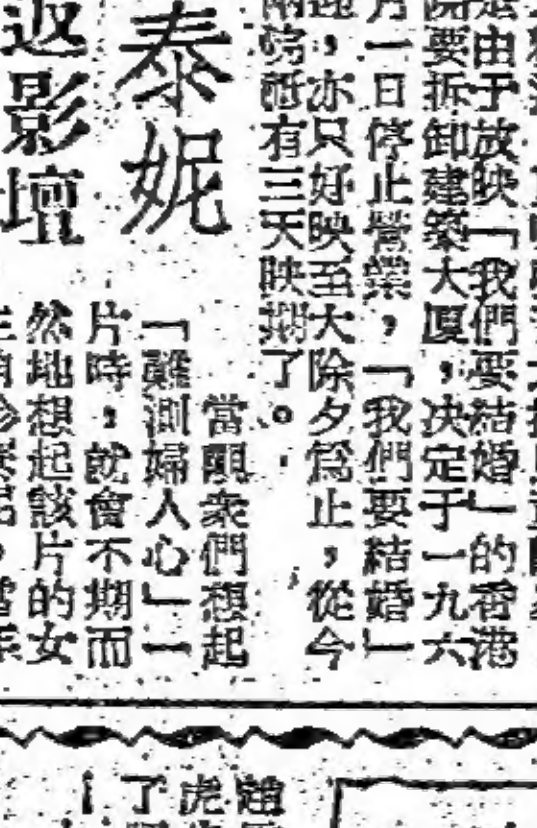 由于放映「我們要結婚」的香港
要拆卸建築大厦，决定于一九六
月一日停止營業，「我們要結婚」
，亦只好映至大除夕爲止，從今
祗有三天映期了。
泰妮
返影壇
當觀衆們想起
「難測婦人心」一
片時，就會不期而
然地想起該片的女
虎
了